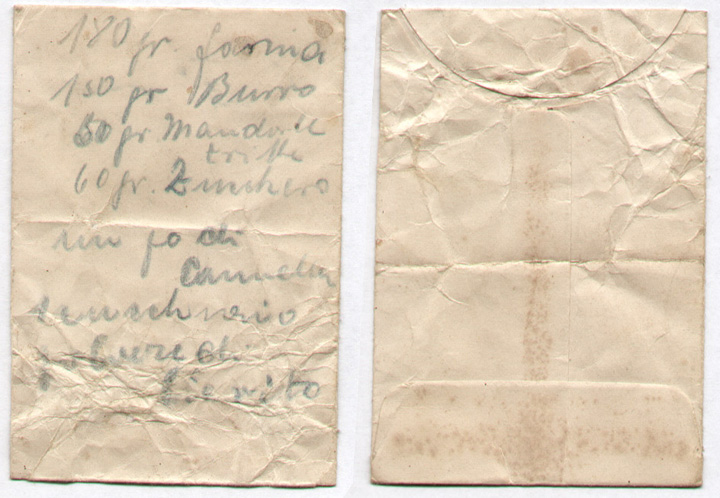 180 gr. farina
150 gr Burro
50 gr Mandorle
tritte
60 gr. Zucchero
un po di
Cannella
un cucchiaio
polvere di
lievito